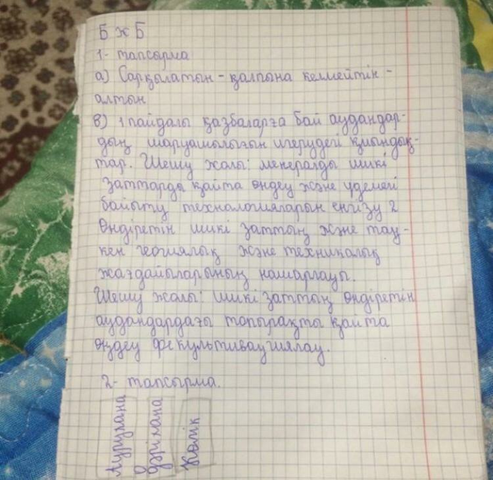 БжБ
1- тапсырма
а) Сарқылатын - қалпына келмейтін -
алтын
в) 1 пайдалы қазбаларға бай аудандар-
дың шаруашылығын игерудегі қиындық-
тар. Шешу жолы: менералды шикі
заттарды қайта өндеу және үдемелі
байыту технологияларын енгізу 2
Өндіретін шикі заттың және тау-
кен геогиялық және техникалық
жағдайларының нашарлауы.
Шешу жолы: шикі заттың өндіретін
аудандардағы топырақты қайта
өңдеу
2- тапсырма.
Аурухана
дәріхана
Көлік